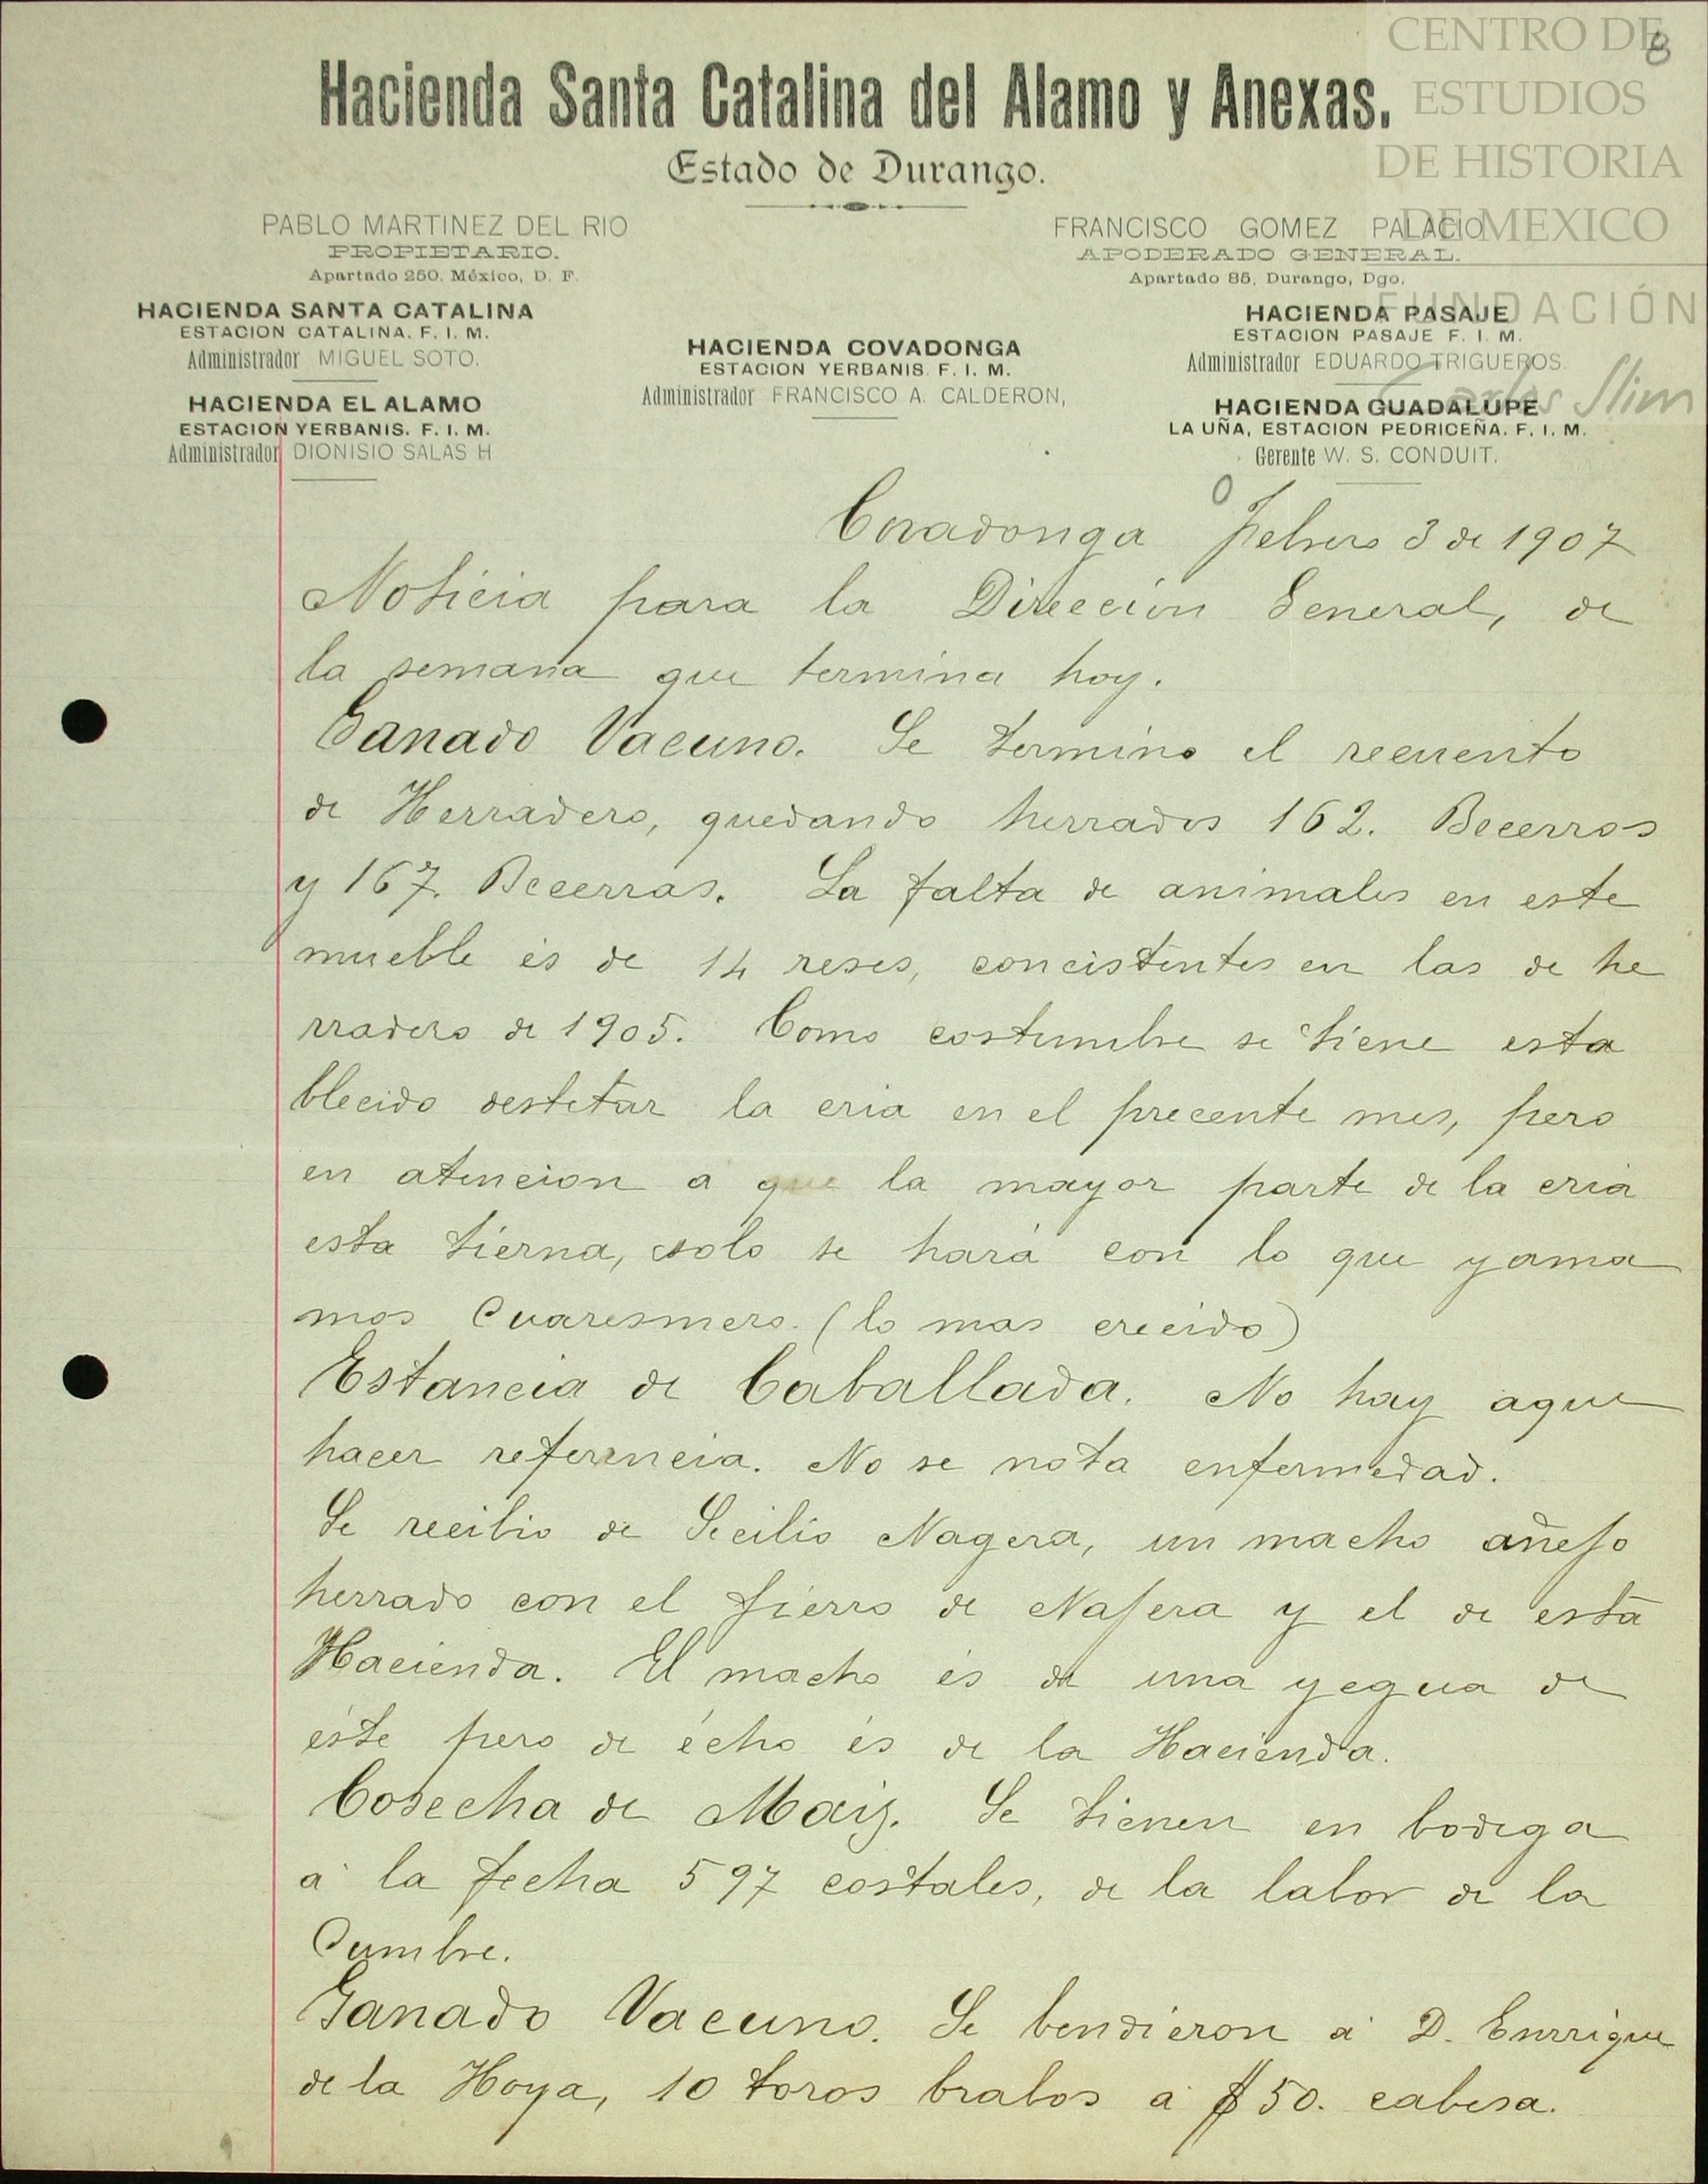 CENTRO DE
ESTUDIOS
DE HISTORIA
DE MEXICO
FUNDACIÓN
Carlos Slim
8
Hacienda Santa Catalina del Alamo y Anexas.
Estado de Durango.
PABLO MARTINEZ DEL RIO
PROPIETARIO.
Apartado 250. México, D. F.
FRANCISCO GOMEZ PALACIO
APODERADO GENERAL.
Apartado 85, Durango, Dgo.
HACIENDA SANTA CATALINA
ESTACION CATALINA. F. I. M.
Administrador MIGUEL SOTO.
HACIENDA EL ALAMO
ESTACION YERBANIS. F. I. M.
Administrador DIONISIO SALAS H
HACIENDA COVADONGA
ESTACION YERBANIS. F. I. M.
Administrador FRANCISCO A. CALDERON,
HACIENDA PASAJE
ESTACION PASAJE F. I. M.
Administrador EDUARDO TRIGUEROS.
HACIENDA GUADALUPE
LA UÑA, ESTACION PEDRICEÑA. F. I. M.
Gerente W. S. CONDUIT.
0
Covadonga Febrero 3 de 1907
Noticia para la Direccion General, de
la semana que termina hoy.
Ganado Vacuno. Se termino el recuento
de Herradero, quedando herrados 162. Becerros
y 167. Becerras. La falta de animales en este
mueble és de 14 reses, concistentes en las de he
rradero de 1905. Como costumbre se tiene esta
blecido destetar la cria en el precente mes, pero
en atencion a que la mayor parte de la cria
esta tierna, solo se hará con lo que yama
mos Cuaresmero. (lo mas crecido)
Estancia de Caballada. No hay aque
hacer referencia. No se nota enfermedad.
Se recibio de Secilio Nagera, un macho añejo
herrado con el fierro de Najera y el de esta
Hacienda. El macho és de una yegua de
éste pero de écho és de la Hacienda.
Cosecha de Maiz. Se tienen en bodega
á la fecha 597 costales, de la labor de la
Cumbre.
Ganado Vacuno. Se bendieron á D. Enrrique
de la Hoya, 10 toros brabos a $50. cabesa.